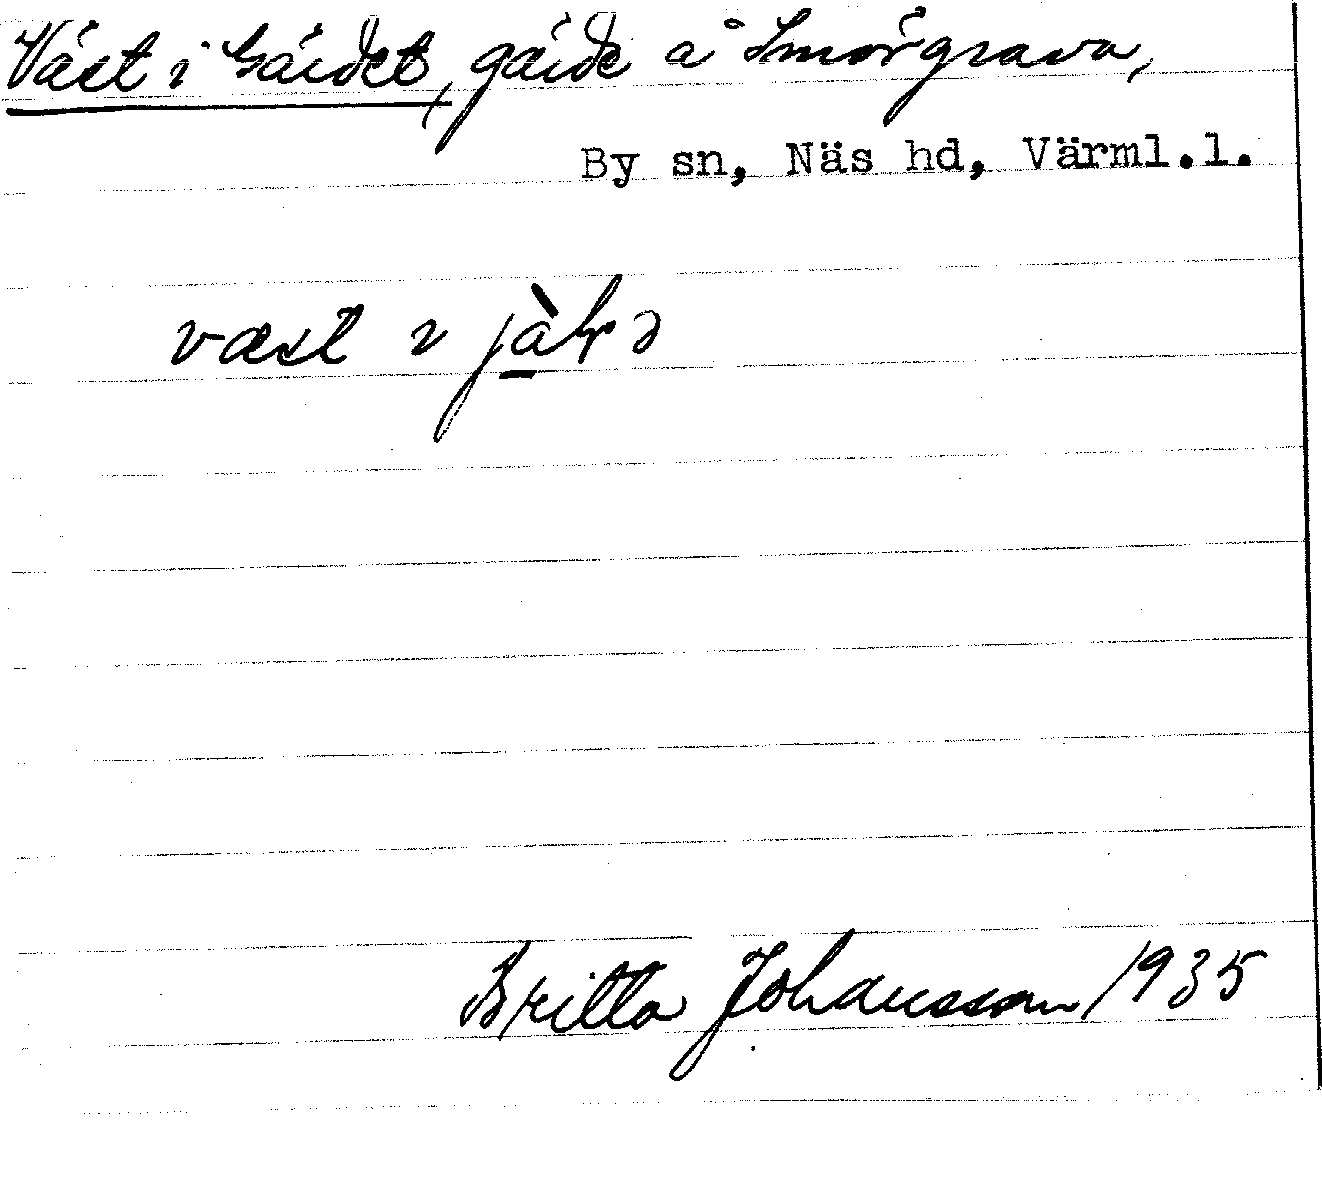 Väst i Gärdet, gärde å Smörgrava,
By sn, Näs hd, Värml.l.
væst ı
Britta Johansson 1935